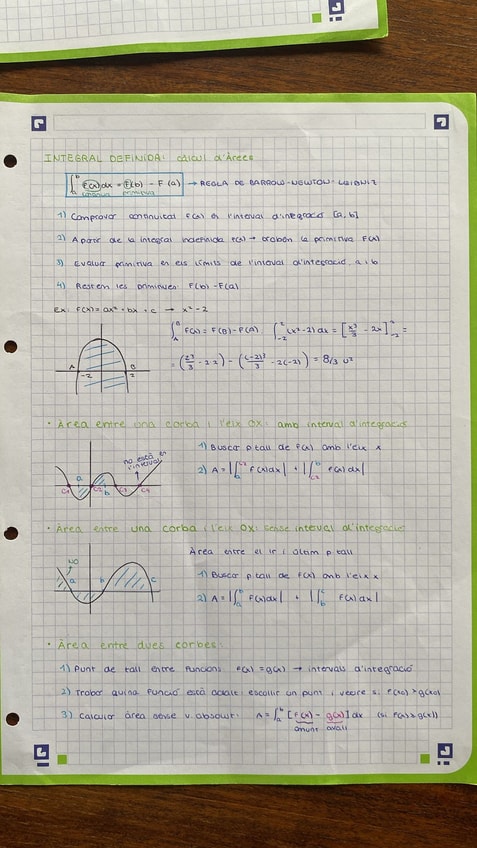 INTEGRAL DEFINIDA: càlcul d'Àrees
∫ₐᵇ F(x)dx = F(b) - F(a) → REGLA DE BARROW-NEWTON-LEIBNIZ
contínua primitiva
1) Comprovar continuïtat F(x) en l'interval d'integració [a,b]
2) A partir de la integral indefinida F(x) → trobem la primitiva F(x)
3) Evaluar primitiva en els límits de l'interval d'integració, a i b
4) Restem les primitives: F(b) - F(a)
Ex: F(x) = ax² + bx + c → x² - 2
∫ₐᵇ F(x) = F(B) - F(A) ∫₋₂² (x² - 2) dx = [x³/3 - 2x]₋₂² =
= (2³/3 - 2·2) - ((-2)³/3 - 2(-2)) = 8/3 u²
A B
-2 2
• Àrea entre una corba i l'eix OX: amb interval d'integració
1) Buscar p tall de F(x) amb l'eix x
2) A = |∫ F(x)dx| + |∫ F(x)dx|
no està en l'interval
a b
C1 C2 C3 C4
• Àrea entre una corba i l'eix OX: sense interval d'integració
Àrea entre el 1r i últim p tall
1) Buscar p tall de F(x) amb l'eix x
2) A = |∫ₐᵇ F(x)dx| + |∫ F(x)dx|
NO
a b c
• Àrea entre dues corbes:
1) Punt de tall entre funcions: F(x) = g(x) → intervals d'integració
2) Trobar quina funció està adalt: escollir un punt i veure si F(x0) > g(x0)
3) Calcular àrea sense v. absolut: A = ∫ₐᵇ [F(x) - g(x)] dx (si F(x) > g(x))
amunt avall